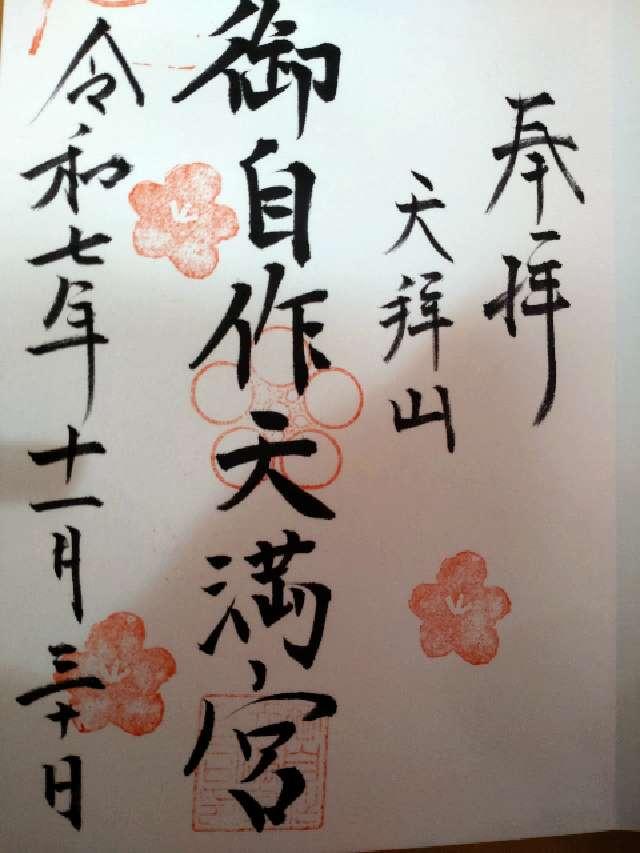 奉拝
天拝山
御自作天満宮
令和七年十一月三十日